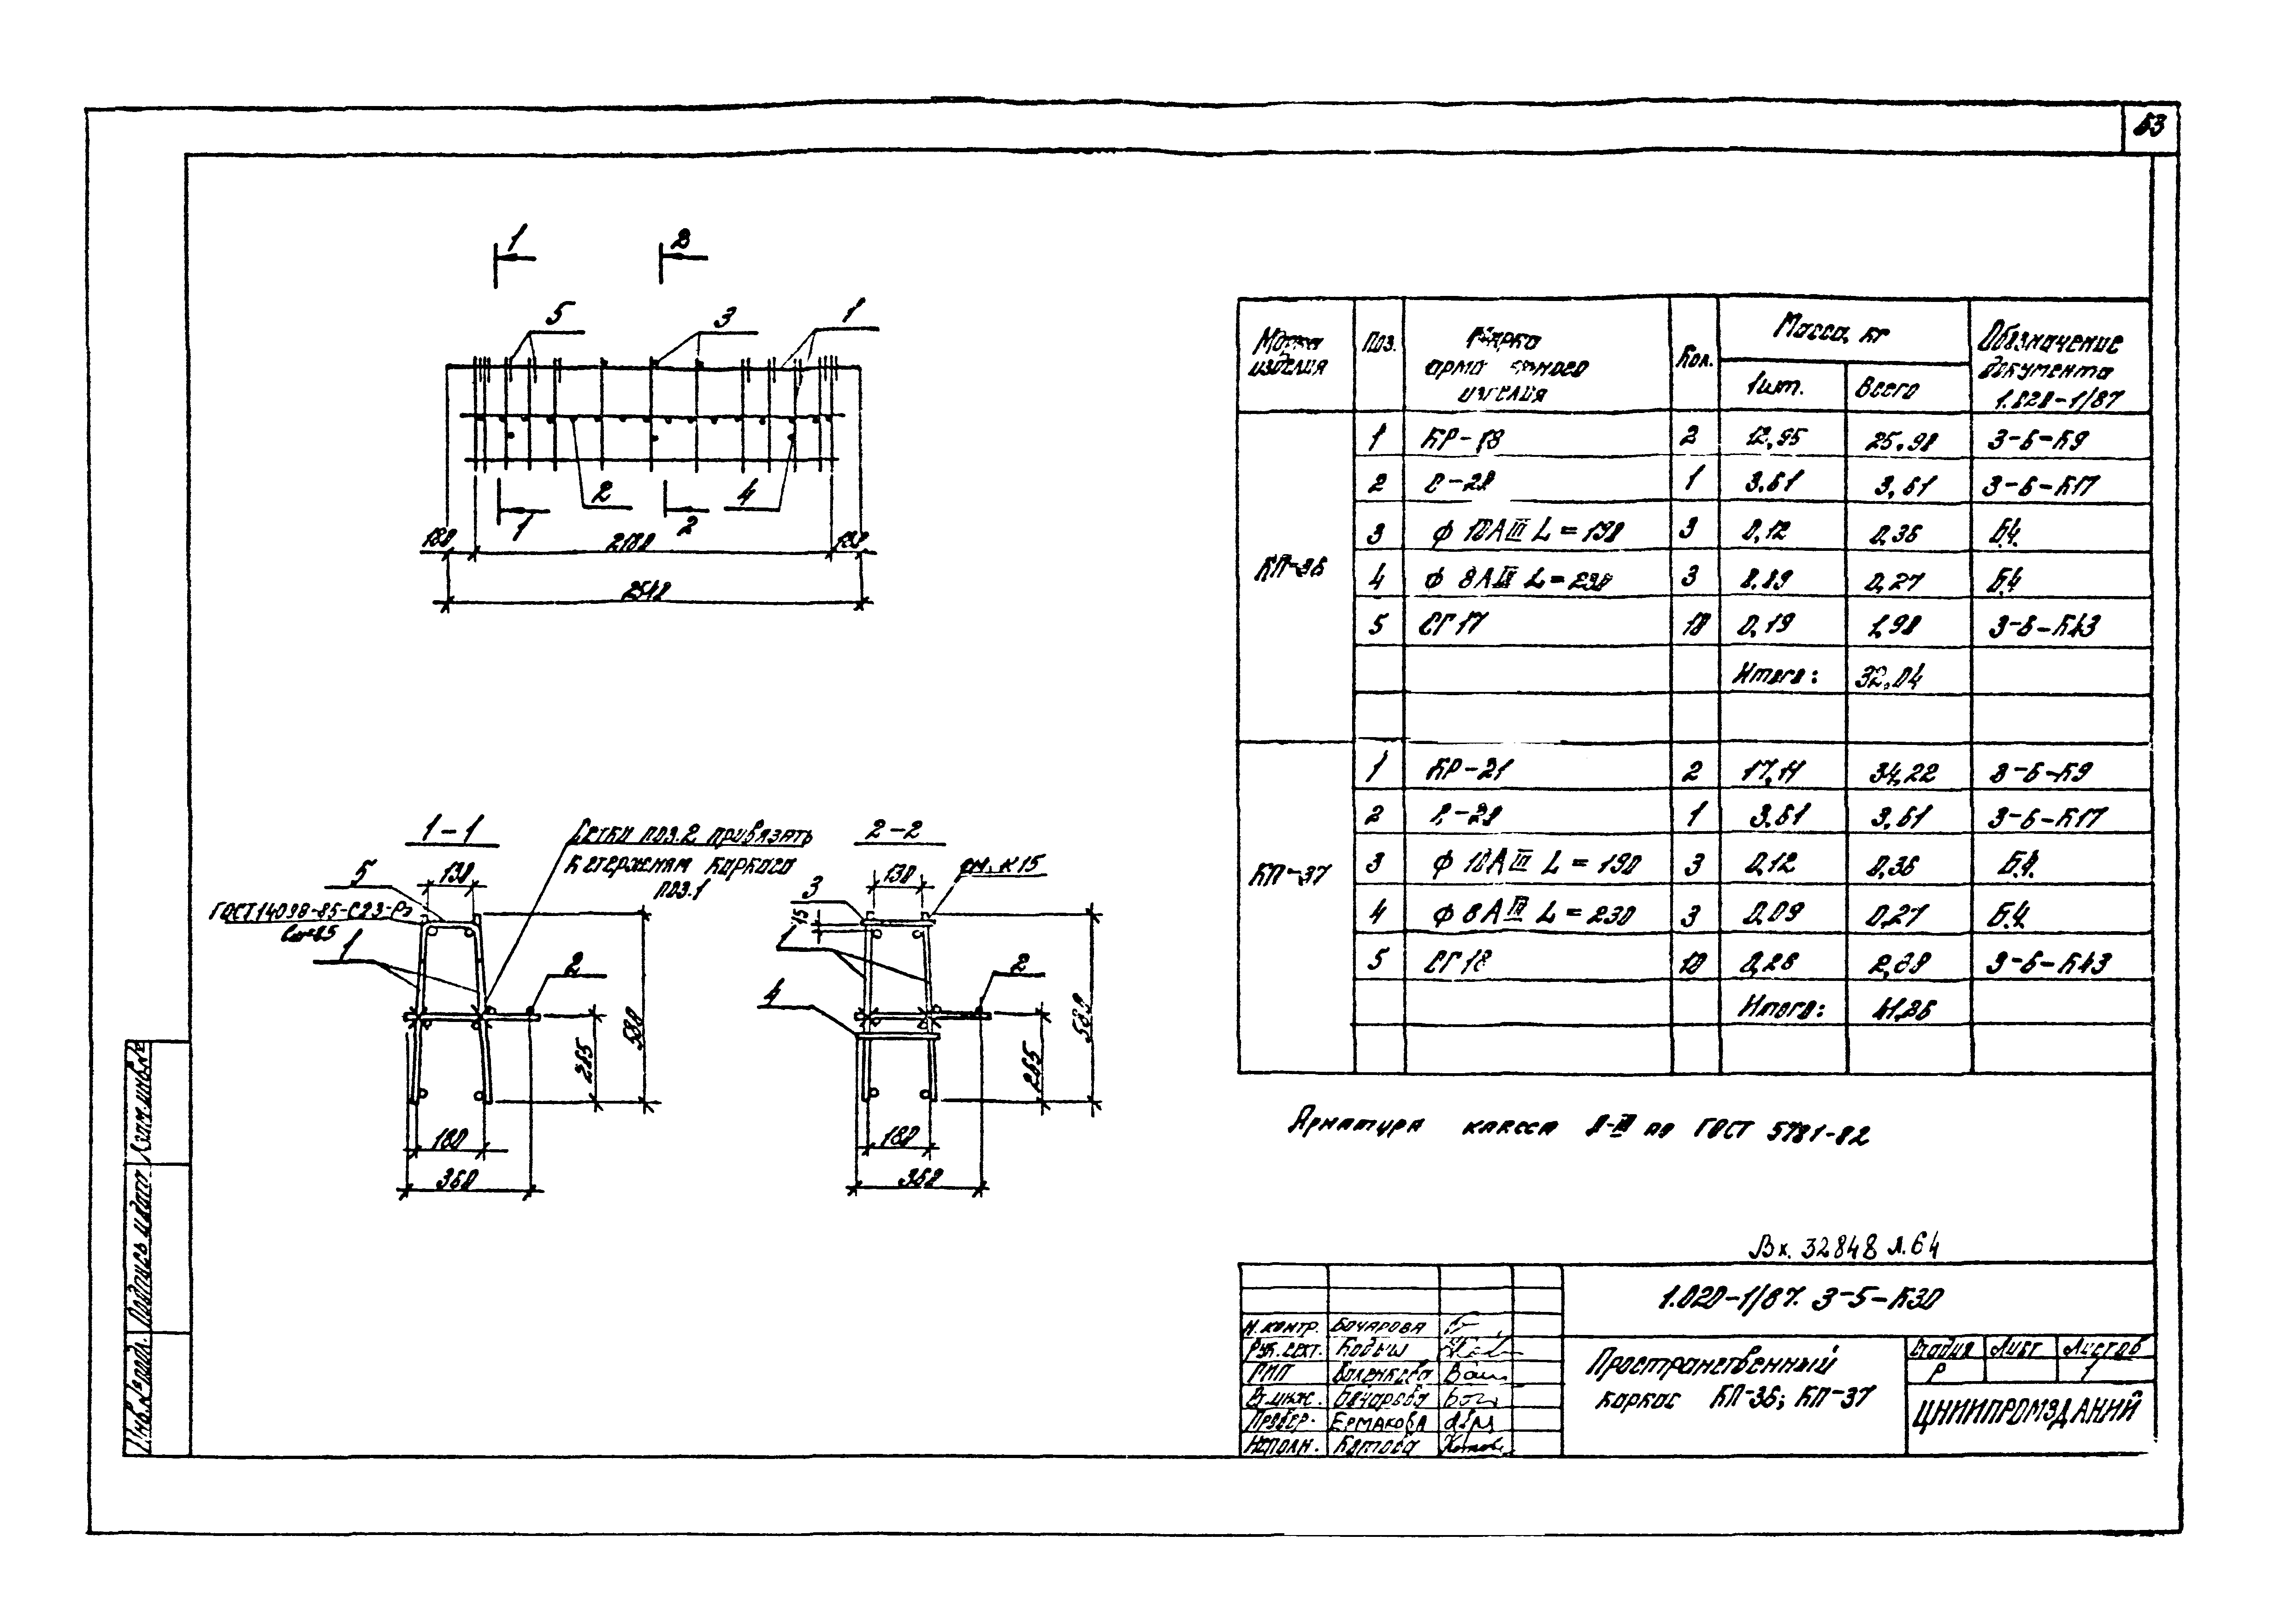 53
1 2
5 3 1
2 4
1 2
180 2180 180
2540
1-1
Сетки поз.2 привязать
к стержням каркаса
поз.1
5 130
ГОСТ14098-85-С23-Рэ
1
2
265 580
180
360
2-2
см. К15
3 130
15
1
2
4
265 580
180
360
Марка изделия Поз. Марка арматурного изделия Кол. Масса, кг Обозначение документа 1.020-1/87
1шт. Всего
КП-36
1 КР-18 2 12,95 25,90 3-5-К9
2 С-20 1 3,61 3,61 3-5-К17
3 ф 10АIII L=190 3 0,12 0,36 Б.ч.
4 ф 8АIII L=230 3 0,09 0,27 Б.ч.
5 СГ17 10 0,19 1,90 3-5-К43
Итого: 32,04
КП-37
1 КР-21 2 17,11 34,22 3-5-К9
2 С-20 1 3,61 3,61 3-5-К17
3 ф 10АIII L=190 3 0,12 0,36 Б.ч.
4 ф 8АIII L=230 3 0,09 0,27 Б.ч.
5 СГ18 10 0,28 2,80 3-5-К43
Итого: 41,26
Арматура класса А-III по ГОСТ 5781-82
Вх. 32848 л.64
1.020-1/87. 3-5-К30
Н.контр. Бочарова
Рук.сект. Кодыш
ГИП
В.инж. Бочарова
Провер. Ермакова
Исполн. Котова
Пространственный
каркас КП-36; КП-37
Стадия Лист Листов
Р 1
ЦНИИПРОМЗДАНИЙ
Взам.инв.№
Подпись и дата
Инв.№подл.